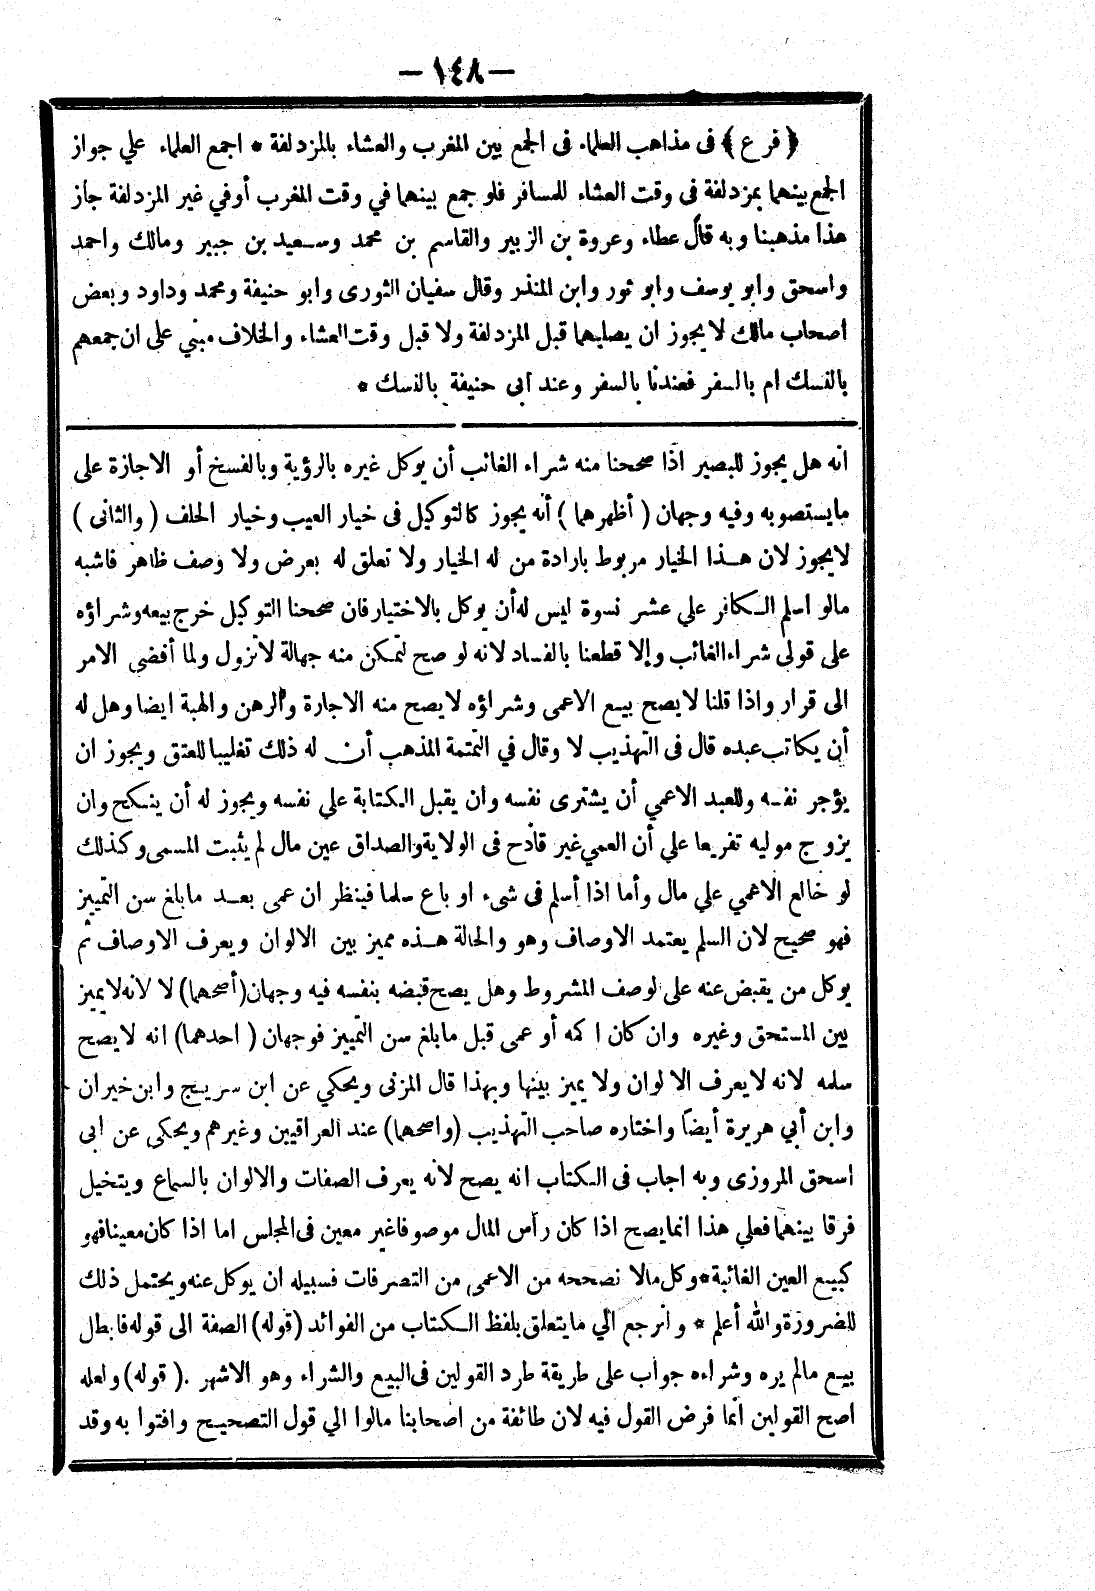 — ١٤٨ —
﴿ فرع ﴾ فى مذاهب العلماء فى الجمع بين المغرب والعشاء بالمزدلفة * اجمع العلماء علي جواز
الجمع بينهما بمزدلفة فى وقت العشاء للمسافر فلو جمع بينهما في وقت المغرب أوفي غير المزدلفة جاز
هذا مذهبنا وبه قال عطاء وعروة بن الزبير والقاسم بن محمد وسعيد بن جبير ومالك واحمد
واسحق وابو يوسف وابو ثور وابن المنذر وقال سفيان الثورى وابو حنيفة ومحمد وداود وبعض
اصحاب مالك لا يجوز ان يصليهما قبل المزدلفة ولا قبل وقت العشاء والخلاف مبني على ان جمعهم
بالنسك ام بالسفر فعندنا بالسفر وعند ابى حنيفة بالنسك *
انه هل يجوز للبصير اذا صححنا منه شراء الغائب أن يوكل غيره بالرؤية وبالفسخ أو الاجازة على
مايستصوبه وفيه وجهان ( أظهرهما ) أنه يجوز كالتوكيل فى خيار العيب وخيار الحلف ( والثانى )
لايجوز لان هذا الخيار مربوط بارادة من له الخيار ولا تعلق له بعرض ولا وصف ظاهر فاشبه
مالو اسلم الكافر علي عشر نسوة ليس له أن يوكل بالاختيار فان صححنا التوكيل خرج بيعه وشراؤه
على قولى شراء الغائب وإلا قطعنا بالفساد لانه لو صح لتمكن منه جهالة لاتزول ولما أفضى الامر
الى قرار واذا قلنا لا يصح بيع الاعمى وشراؤه لا يصح منه الاجارة والرهن والهبة ايضا وهل له
أن يكاتب عبده قال فى التهذيب لا وقال في التتمة المذهب أن له ذلك تغليبا للعتق ويجوز ان
يؤجر نفسه وللعبد الاعمي أن يشترى نفسه وان يقبل الكتابة علي نفسه ويجوز له أن ينكح وان
يزوج موليه تفريعا علي أن العمي غير قادح فى الولاية والصداق عين مال لم يثبت المسمى وكذلك
لو خالع الاعمي علي مال وأما اذا أسلم فى شىء او باع سلما فينظر ان عمى بعد مابلغ سن التمييز
فهو صحيح لان السلم يعتمد الاوصاف وهو والحالة هذه مميز بين الالوان ويعرف الاوصاف ثم
يوكل من يقبض عنه على الوصف المشروط وهل يصح قبضه بنفسه فيه وجهان (أصحهما) لا لانه لا يميز
بين المستحق وغيره وان كان اكمه أو عمى قبل مابلغ سن التمييز فوجهان ( احدهما) انه لا يصح
سلمه لانه لا يعرف الالوان ولا يميز بينها وبهذا قال المزنى ويحكي عن ابن سريج وابن خيران
وابن أبي هريرة أيضاً واختاره صاحب التهذيب (واصحهما) عند العراقيين وغيرهم ويحكى عن ابى
اسحق المروزى وبه اجاب فى الكتاب انه يصح لانه يعرف الصفات والالوان بالسماع ويتخيل
فرقا بينهما فعلي هذا انما يصح اذا كان رأس المال موصوفا غير معين فى المجلس اما اذا كان معينا فهو
كبيع العين الغائبة * وكل مالا نصححه من الاعمى من التصرفات فسبيله ان يوكل عنه ويحتمل ذلك
للضرورة والله أعلم * ولنرجع الي مايتعلق بلفظ الكتاب من الفوائد (قوله) الصفة الى قوله فابطل
بيع مالم يره وشراءه جواب على طريقة طرد القولين فى البيع والشراء وهو الاشهر . ( قوله) ولعله
اصح القولين انما فرض القول فيه لان طائفة من اصحابنا مالوا الي قول التصحيح وافتوا به وقد